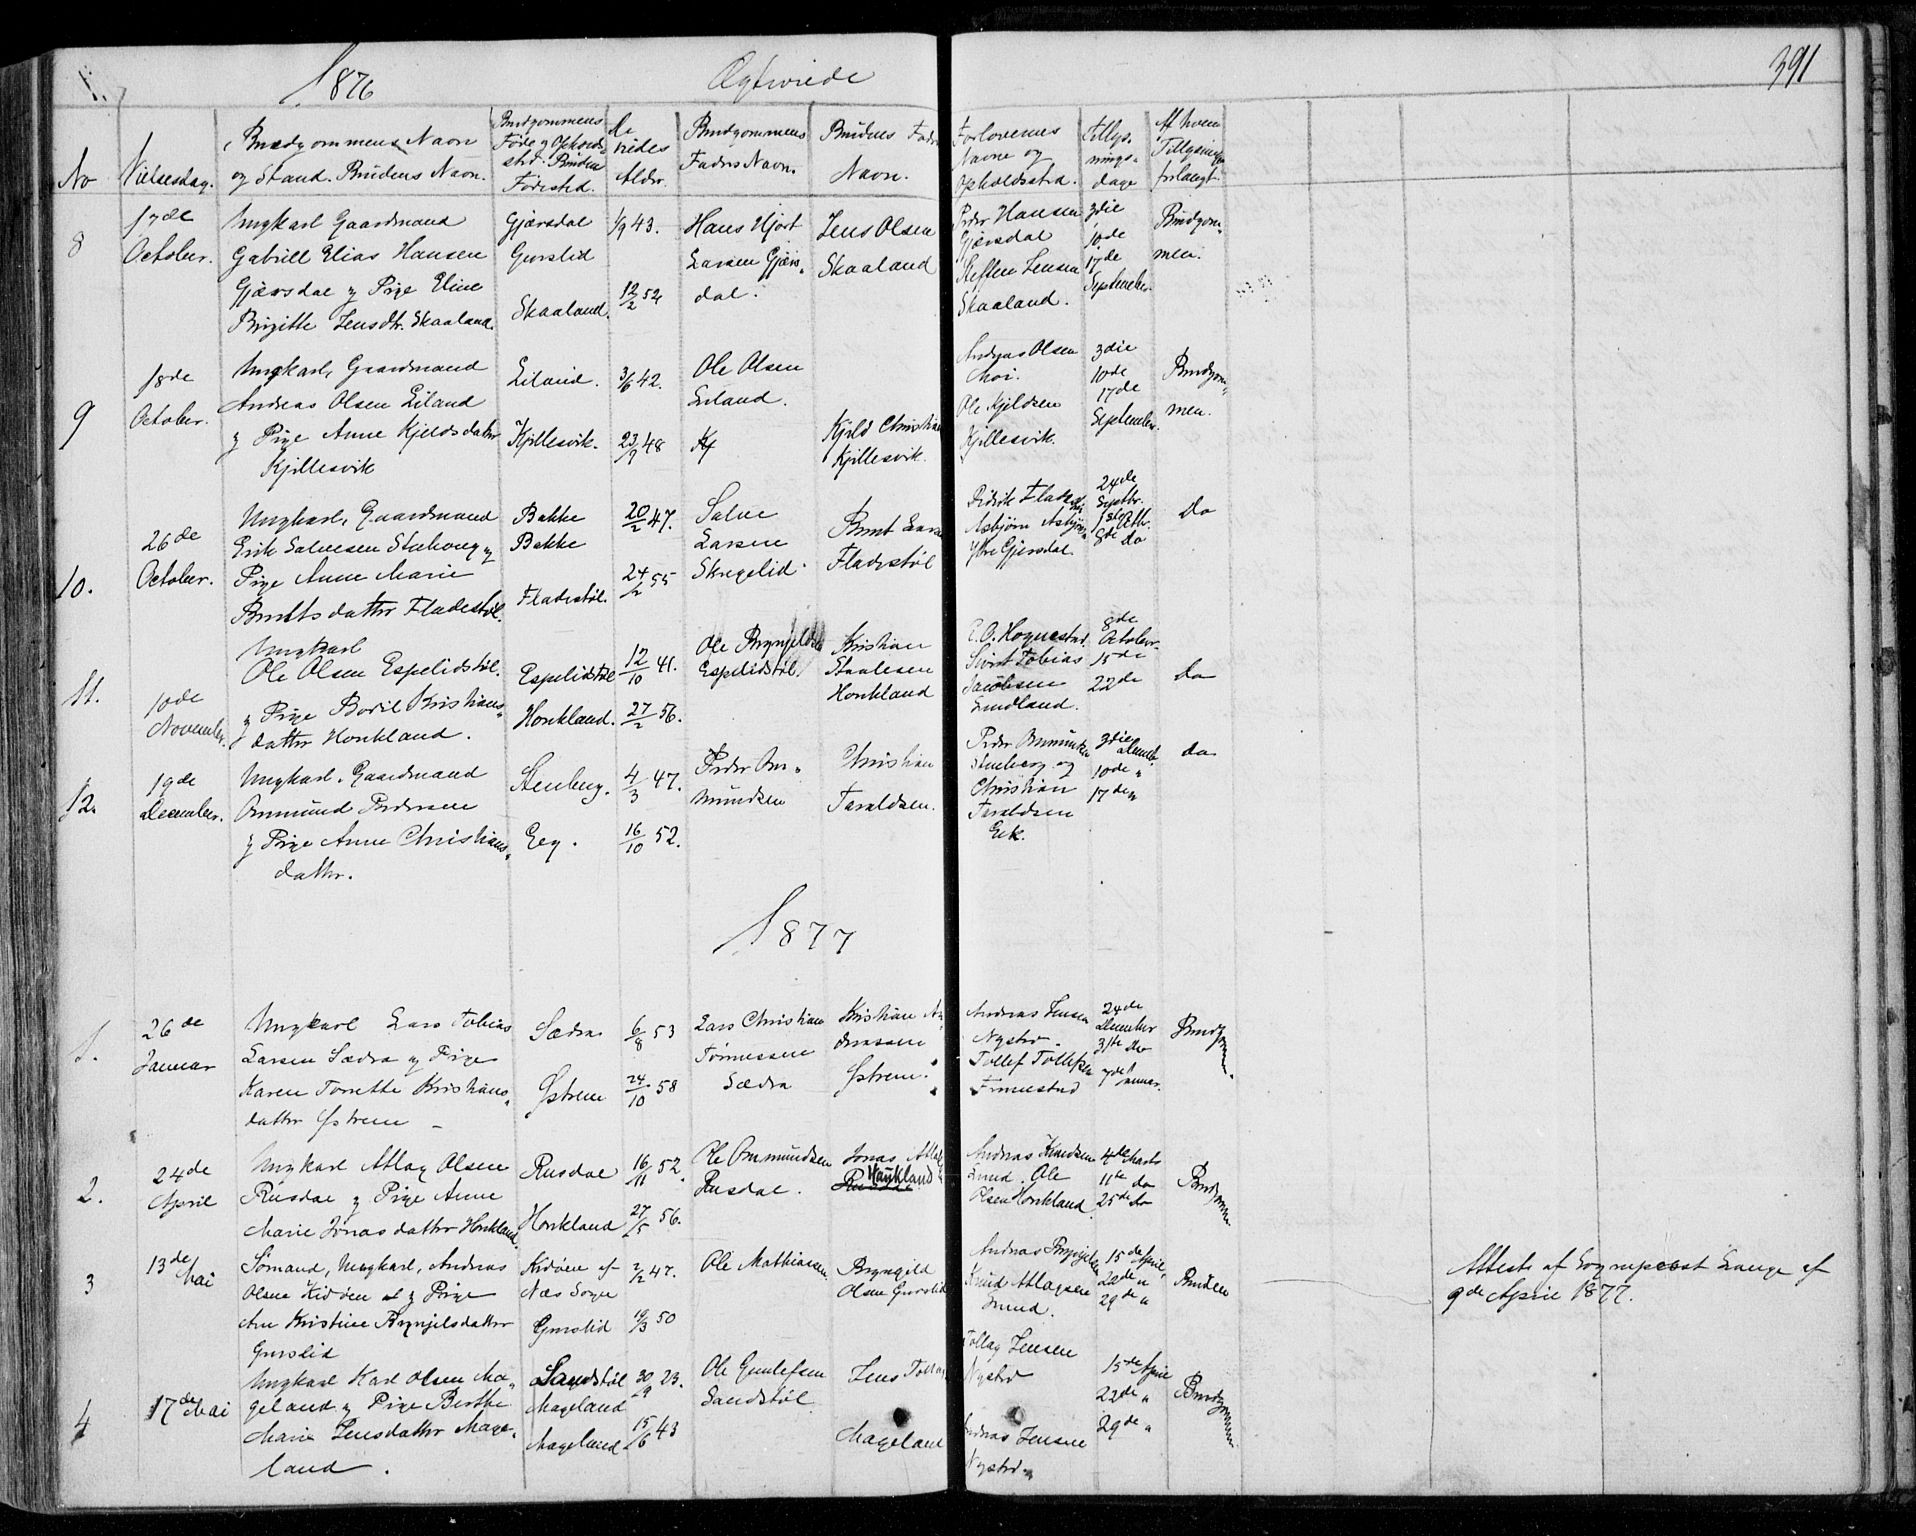 1876 Ægtviede 391
No
Vielsesdag.
Brudgommens Navn
og Stand. Brudens Navn.
Brudgommens
Føde og Opholds-
sted. Brudens
Fødested.
De
viedes
Alder.
Brudgommens
Faders Navn.
Brudens Faders
Navn.
Forlovernes
Navne og
Opholdssted.
Tillys-
nings-
dage
Af hvem
Tillysningen
forlangt.
8
17de
October.
Ungkarl Gaardmand
Gabriell Elias Hansen
Gjærsdal og Pige Eline
Birgitte Jensdtr. Skaaland.
Gjærsdal
Gurslid
Skaaland.
1/9 43.
12/2 52
Hans Hjort
Larsen Gjærs-
dal.
Jens Olsen
Skaaland
Peder Hansen
Gjærsdal
Steffen Jensen
Skaaland.
3die
10de
17de
September.
Brudgom-
men.
9
18de
October.
Ungkarl, Gaardmand
Andreas Olsen Eiland
og Pige Anne Kjeldsdatter
Kjillesvik
Eiland.
Kjillesvik.
3/6 42.
23/9 48
Ole Olsen
Eiland.
Kj
Kjeld Christian
Kjillesvik.
Andreas Olsen
Moi.
Ole Kjeldsen
Kjillesvik.
3die
10de
17de
September.
Brudgom-
men.
10.
26de
October.
Ungkarl, Gaardmand
Erik Salvesen Steberg og
Pige Anne Marie
Berntsdatter Fladestøl.
Bakke
Bakke
Fladestøl.
20/2 47.
24/2 55
Salve
Larsen
Skregelid.
Bernt Lars
Fladestøl
Didrik Fladestøl
Asbjørn Asbjørns
Ytre Gjersdal.
24de
Septbr.
1ste Octb.
8de do
do
11.
10de
November.
Ungkarl
Ole Olsen Espelidstøl.
og Pige Boril Kristians-
datter Honkland.
Espelidstøl
Honkland.
12/10 41.
27/2 56.
Ole Brynjeldsen
Espelidstøl.
Kristian
Staalesen
Honkland
E. O. Hognestad.
Sivert Tobias
Jacobsen
Lindland.
8de
October.
15de
22de
do
12.
19de
December.
Ungkarl. Gaardmand
Ommund Pedersen
og Pige Anne Christians-
datter.
Stenberg.
Eeg.
4/3 47.
16/10 52.
Peder Om-
mundsen
Christian
Taraldsen.
Peder Ommundsen
Stenberg og
Christian
Taraldsen
Eek.
3die Decemb.
10de "
17de "
do
1877
1.
26de
Januar
Ungkarl Lars Tobias
Larsen Sædra og Pige
Karen Tonette Kristians-
datter Ystrem
Sædra
Ystrem
6/8 53
24/10 58
Lars Christian
Tønnessen
Sædra
Kristian An-
dreassen
Ystrem.
Andreas Jensen
Nysted.
Tollef Tollefsen
Finnestad
24de
December
31te do
7de Januar.
Brudgom.
2.
24de
April
Ungkarl Atlag Olsen
Rusdal og Pige Anne
Marie Jonasdatter Honkland.
Rusdal
Honkland
16/11 52.
27/5 56.
Ole Ommundsen
Rusdal.
Jonas Atlak
Haukland
Andreas Knudsen
Lund. Ole
Olsen Honkland
4de Marts
11te do
25de do
Brudgommen
3
13de
Mai
Sømand, Ungkarl, Andreas
Olsen Kidøen og Pige
Ane Kristine Brynjelsdatter
Gurslid
Kidøen af
Næs Sogn
Gurslid
2/2 47.
19/3 50
Ole Mathiasen
Brynjild
Olsen Gurslid
Andreas Brynjelsen
Knud Atlagsen
Lund.
15de April,
22de "
29de "
Bruden
Attest af Sognepræst Lange af
9de April 1877.
4
17de Mai
Ungkarl Karl Olsen Ma-
geland og Pige Berthe
Marie Jensdatter Mage-
land.
Sandstøl
Mageland
Mageland
30/9 23.
15/6 43
Ole Guttefsen
Sandstøl
Jens Tollag
Mageland
Tollag Jensen
Nysted
Andreas Jensen
Nysted.
15de April
22de "
29de "
Brudgommen